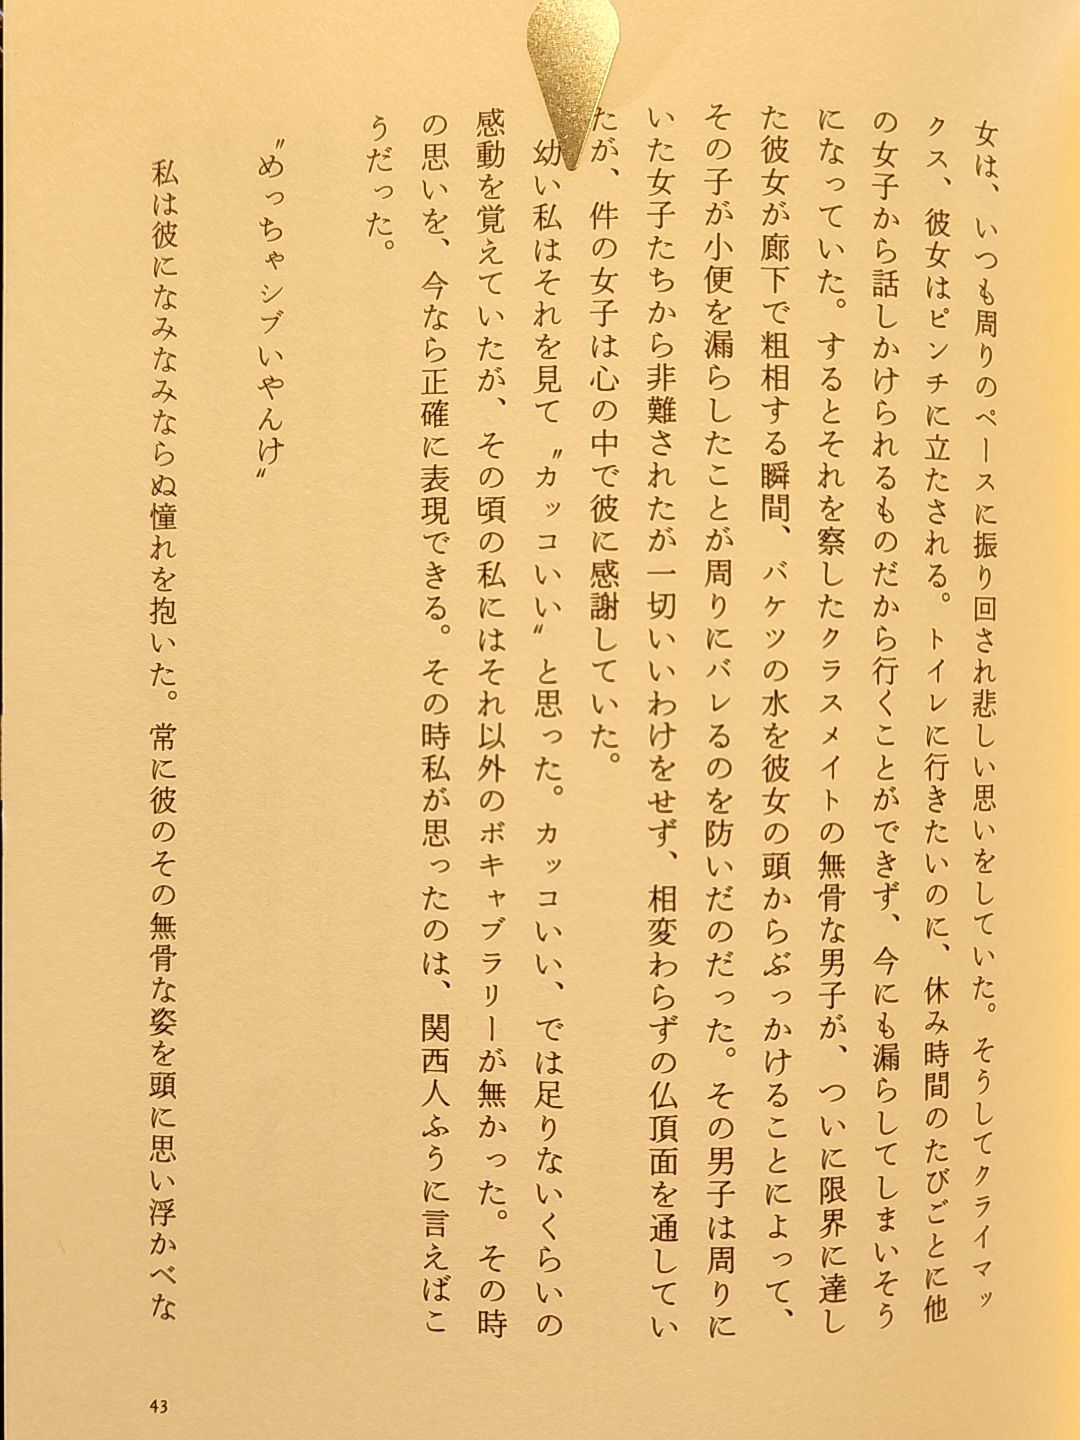 女は、いつも周りのペースに振り回され悲しい思いをしていた。そうしてクライマッ
クス、彼女はピンチに立たされる。トイレに行きたいのに、休み時間のたびごとに他
の女子から話しかけられるものだから行くことができず、今にも漏らしてしまいそう
になっていた。するとそれを察したクラスメイトの無骨な男子が、ついに限界に達し
た彼女が廊下で粗相する瞬間、バケツの水を彼女の頭からぶっかけることによって、
その子が小便を漏らしたことが周りにバレるのを防いだのだった。その男子は周りに
いた女子たちから非難されたが一切いいわけをせず、相変わらずの仏頂面を通してい
たが、件の女子は心の中で彼に感謝していた。
幼い私はそれを見て〝カッコいい〟と思った。カッコいい、では足りないくらいの
感動を覚えていたが、その頃の私にはそれ以外のボキャブラリーが無かった。その時
の思いを、今なら正確に表現できる。その時私が思ったのは、関西人ふうに言えばこ
うだった。
〝めっちゃシブいやんけ〟
私は彼になみなみならぬ憧れを抱いた。常に彼のその無骨な姿を頭に思い浮かべな
43